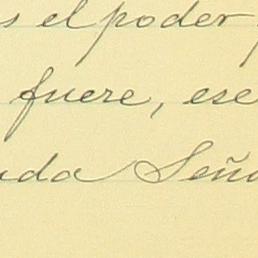 s el poder
fuere, ese
uda Seña